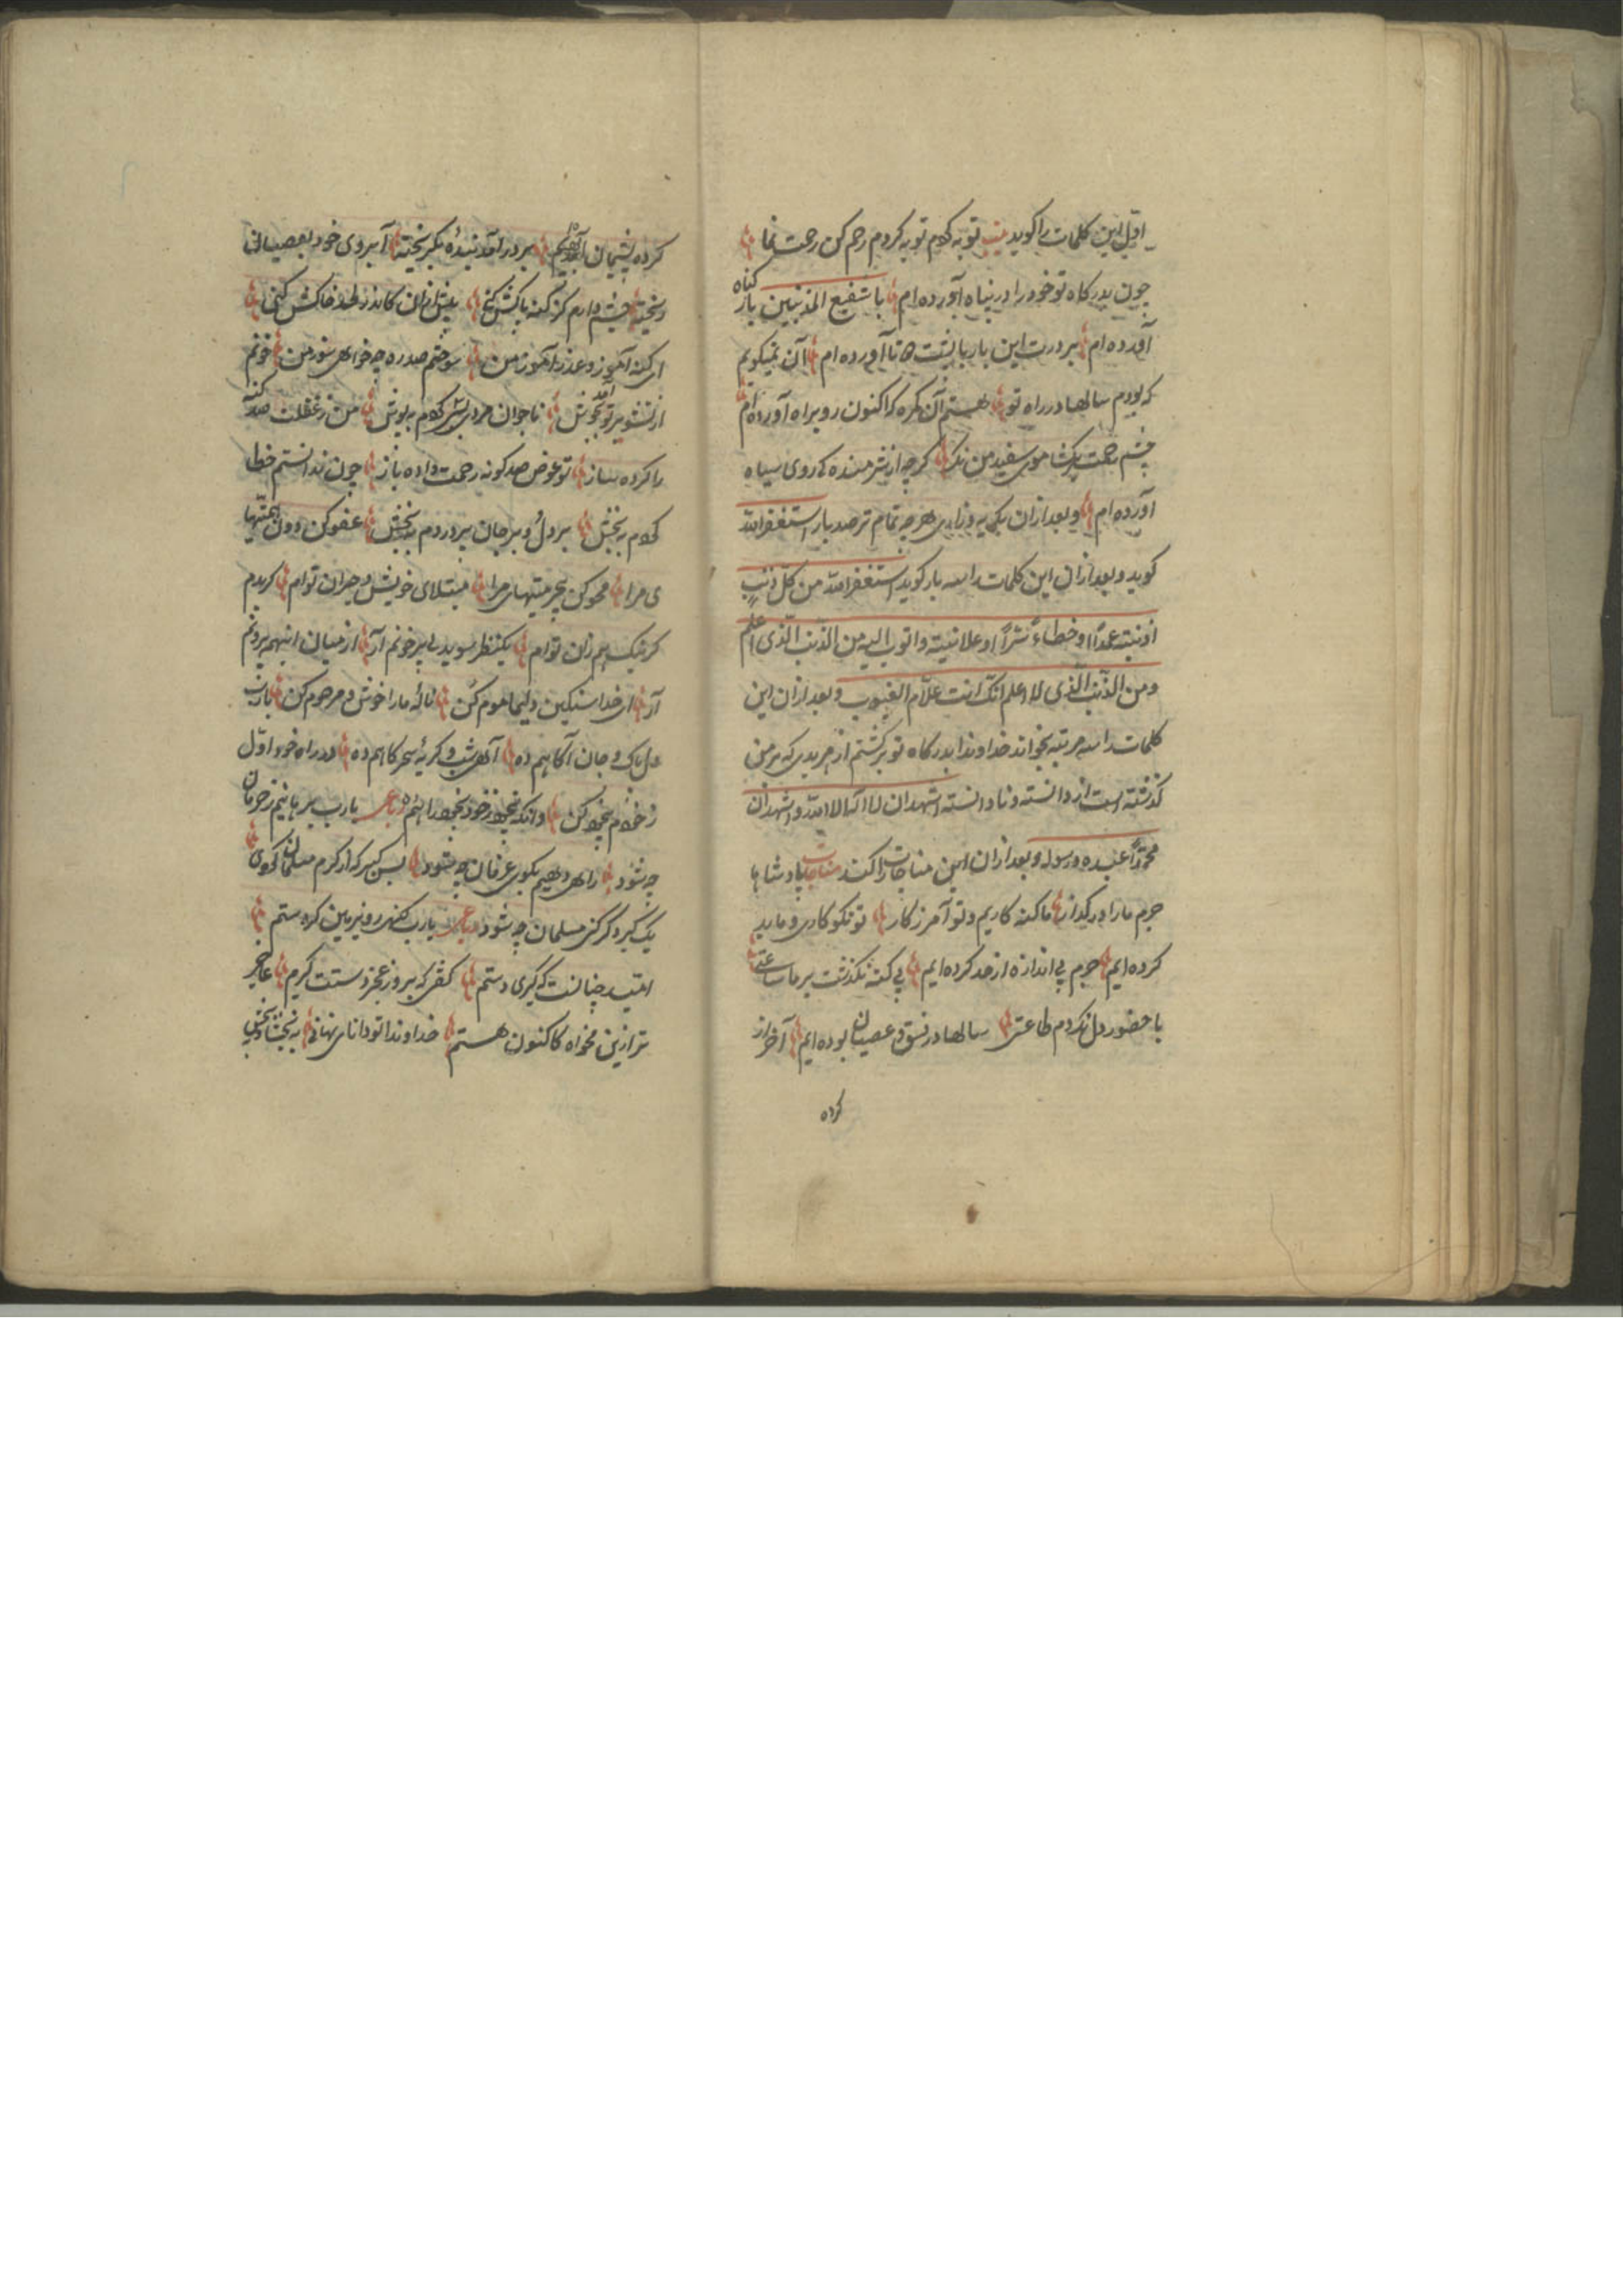 اول این کلمات را گوید بیت توبه کردم توبه کردم رحم کن رحمت نما
چون بدرگاه تو خود را در پناه آورده ام یا شفیع المذنبین بار گناه
آورده ام بر درت این بار با پشت دوتا آورده ام آن نمیگویم
که بودم سالها در راه تو هستم آن گمره که اکنون رو براه آورده ام
چشم رحمت برگشا موی سفید من نگر گرچه از شرمندگی روی سیاه
آورده ام و بعد ازان بگریه وزاری هرچه تمام تر صد بار استغفرالله
گوید و بعد ازان این کلمات را سه بار گوید استغفرالله من کل ذنب
اذنبته عمدًا او خطاءً سرًا او علانیة واتوب الیه من الذنب الذی اعلم
ومن الذنب الذی لا اعلم انک انت علّام الغیوب و بعد ازان این
کلمات را سه مرتبه بخواند خداوندا بدرگاه تو برگشتم از هر بدی که بر من
گذشته است از دانسته و نادانسته اشهد ان لا اله الا الله و اشهد ان
محمدًا عبده ورسوله و بعد ازان این مناجات را کند مناجات پادشاها
جرم ما را درگذار ما گنه کاریم و تو آمرزگار تو نکوکاری و ما بد
کرده ایم جرم بی اندازه از حد کرده ایم بی گنه نگذشت بر ما ساعتی
با حضور دل نکردم طاعتی سالها در فسق و عصیان بوده ایم آخر از
کرده
کرده پشیمان بوده ایم بر در آمد بندهٔ بگریخته آبروی خود بعصیان
ریخته چشم دارم کز گنه پاکش کنی پیش ازان کاندر لحد خاکش کنی
ای گنه آمرز و عذر آموز من سوختم صد ره چه خواهی سوز من خونم
از تشویر تو آمد بجوش ناجوان مردی بسی کردم بپوش من ز غفلت صد گنه
را کرده ساز تو عوض صد گونه رحمت داده باز چون ندانستم خطا
کردم ببخش بر دل و بر جان پر دردم ببخش عفو کن دون همتیها
ی مرا محو کن بیحرمتیهای مرا مبتلای خویش و حیران توام گر بدم
گر نیک هم زان توام یکنظر سوی دل پر خونم آر از میان اینهمه بیرونم
آر ای خدا سنگین دلیما موم کن نالهٔ ما را خوش و مرحوم کن یارب
دل پاک و جان آگاهم ده آه شب و گریهٔ سحرگاهم ده در راه خود اول
ز خودم بیخود کن وانگه بیخود ز خود بخود راهم ده رباعی یارب برهانیم ز حرمان
چه شود راهی دهیم بکوی عرفان چه شود بس گبر که از کرم مسلمان کردی
یک گبر دگر کنی مسلمان چه شود رباعی یارب گنهم رو بزمین کرد ستم
امید چنانست که گیری دستم گفتی که بروز عجز دستت گیرم عاجز
تر ازین مخواه کاکنون هستم خداوندا تو دانای نهانی